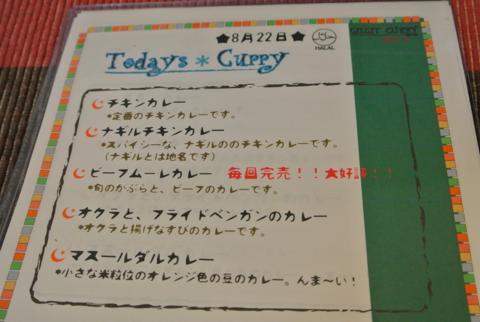 ★8月22日★
HALAL
Todays＊Curry
チキンカレー
*定番のチキンカレーです。
ナギルチキンカレー
*スパイシーな、ナギルののチキンカレーです。
(ナギルとは地名です)
ビーフムーレカレー 毎回完売！！★好評！！
*旬のかぶらと、ビーフのカレーです。
オクラと、フライドベンガンのカレー
*オクラと揚げなすびのカレーです。
マスールダルカレー
*小さな米粒位のオレンジ色の豆のカレー。んま～い！